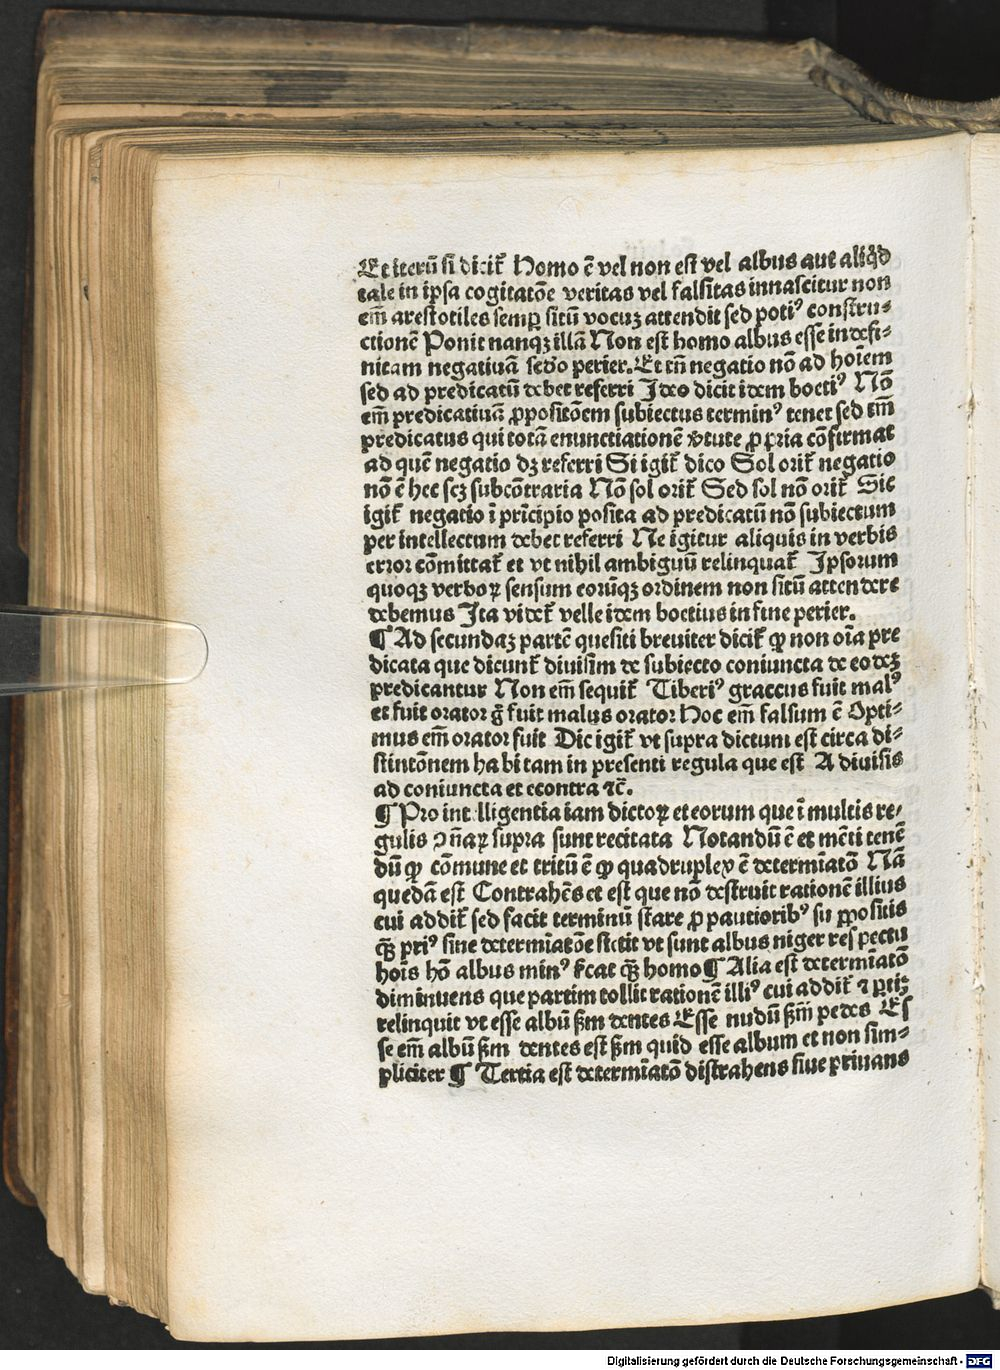 Et iterū si dicit᷑ Homo ē vel non est vel albus aut aliq̇d
tale in ipsa cogitatōe veritas vel falsitas innascitur non
em̄ arestotiles semꝑ sitū vocuꝫ attendit sed potiꝰ constru⸗
ctionē Ponit nanqꝫ illā Non est homo albus esse indefi⸗
nitam negatiuā scd̓o perier. Et tn̄ negatio nō ad hoīem
sed ad predicatū debet referri Ideo dicit idem boetiꝰ Nō
em̄ predicatiuā ꝓpositōem subiectus terminꝰ tenet sed tm̄
predicatus qui totā enunctiationē v̓tute ꝓpria cōfirmat
ad quē negatio dꝫ referri Si igit᷑ dico Sol orit᷑ negatio
nō ē hec scꝫ subcōtraria Nō sol orit᷑ Sed sol nō orit᷑ Sic
igit᷑ negatio ī prīcipio posita ad predicatū nō subiectum
per intellectum debet referri Ne igitur aliquis in verbis
error cōmittat᷑ et vt nihil ambiguū relinquat᷑ Ipsorum
quoqꝫ verboꝝ sensum eorūqꝫ ordinem non sitū attendere
debemus Ita videt᷑ velle idem boetius in fine perier.
¶ Ad secundaꝫ partē quesiti breuiter dicit᷑ ꝙ non oīa pre
dicata que dicunt᷑ diuisim de subiecto coniuncta de eodeꝫ
predicantur Non em̄ sequit᷑ Tiberiꝰ graccus fuit malꝰ
et fuit orator g̊ fuit malus orator Hoc em̄ falsum ē Opti⸗
mus em̄ orator fuit Dic igit᷑ vt supra dictum est circa di⸗
stinctōnem habitam in presenti regula que est A diuisis
ad coniuncta et econtra ⁊c̄.
¶ Pro int lligentia iam dictoꝝ et eorum que ī multis re⸗
gulis ↄn̄aꝝ supra sunt recitata Notandū ē et mēti tenē
dū ꝙ cōmune et tritū ē ꝙ quadruplex ē determīatō Nā
quedā est Contrahēs et est que nō destruit rationē illius
cui addit᷑ sed facit terminū stare ꝓ pautioribꝰ suppositis
q̄ꝫ priꝰ sine determīatōe stetit vt sunt albus niger respectu
hoīs hō albus minꝰ s̓cat q̄ꝫ homo ¶ Alia est determīatō
diminuens que partim tollit rationē illiꝰ cui addit᷑ ⁊ ꝑtiꝫ
relinquit vt esse albū ẜm dentes Esse nudū ẜm pedes Es
se em̄ albū ẜm dentes est ẜm quid esse album et non sim⸗
pliciter ¶ Tertia est determīatō distrahens siue priuans
Digitalisierung gefördert durch die Deutsche Forschungsgemeinschaft - DFG